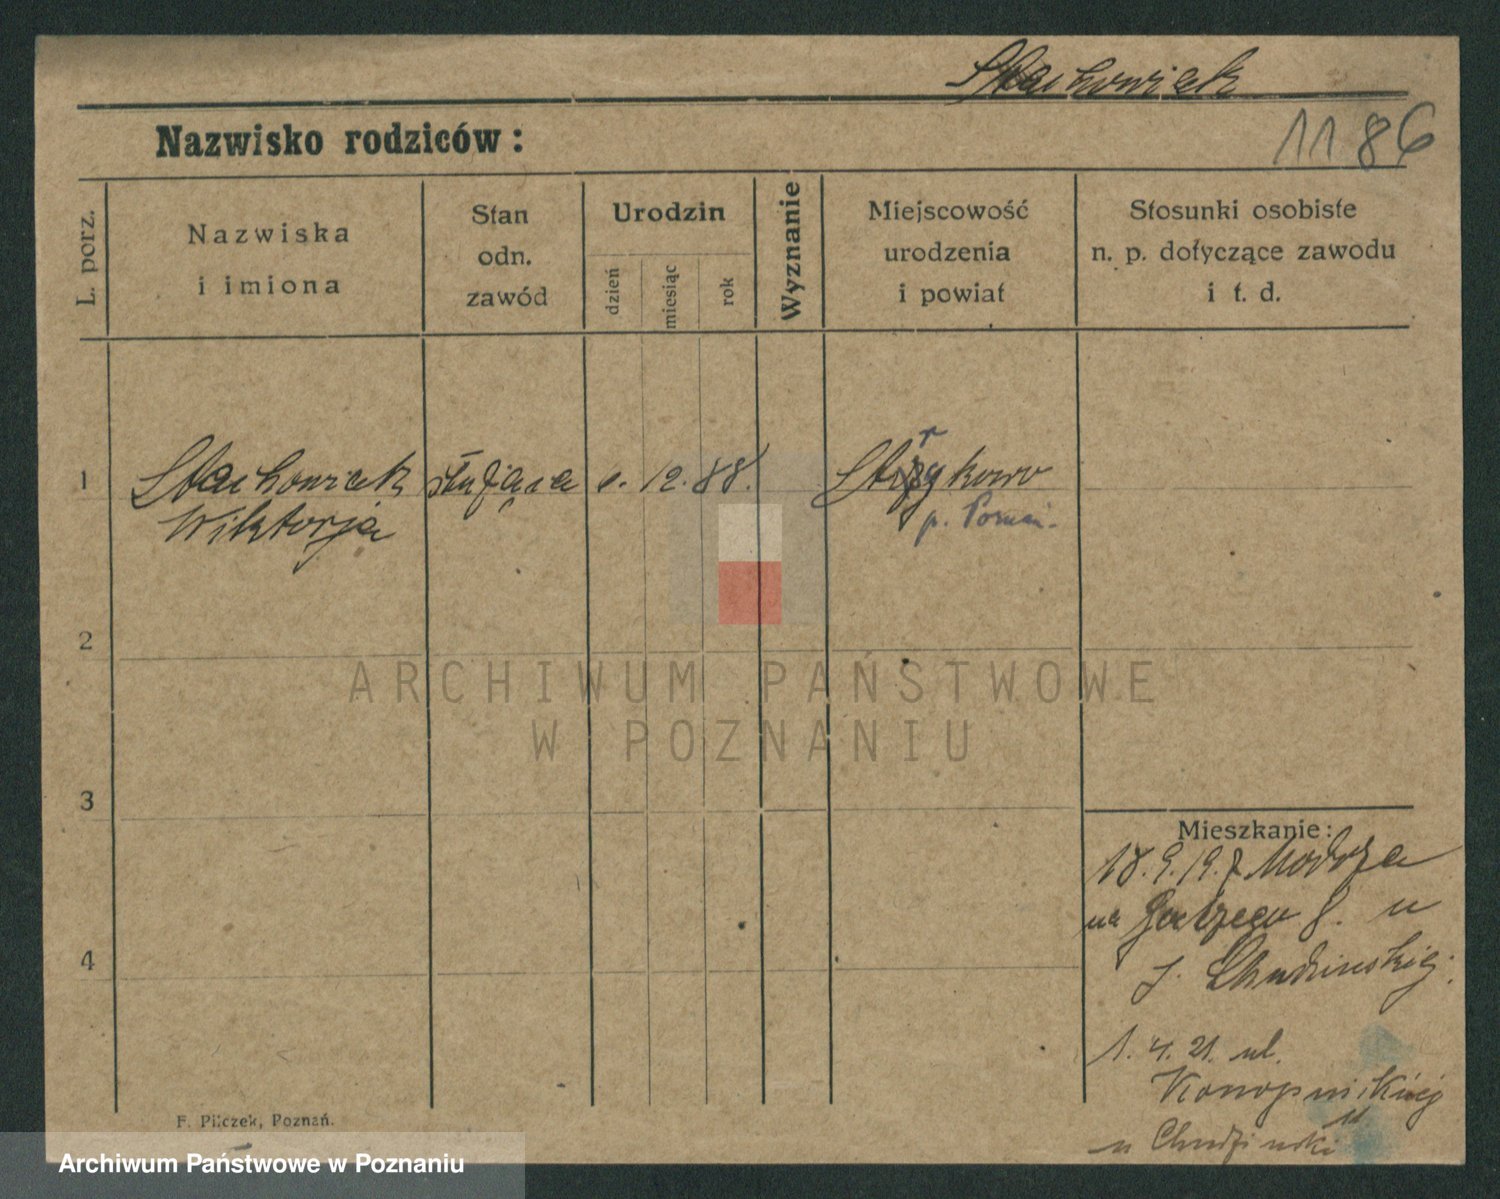 Stachowiak
Nazwisko rodziców:
1186
L. porz.
Nazwiska
i imiona
Stan
odn.
zawód
Urodzin
dzień
miesiąc
rok
Wyznanie
Miejscowość
urodzenia
i powiat
Stosunki osobiste
n. p. dotyczące zawodu
i t. d.
1
Stachowiak
Wiktorja
służąca
12. 88.
Strykowo
r
p. Poznań.
2
3
4
Mieszkanie:
18. 9. 19. z Modrza
na 8. u
J. Chudzinskiej.
1. 4. 21. ul.
Konopnickiej
u Chudzinski
F. Pilczek, Poznań.
ARCHIWUM PAŃSTWOWE
W POZNANIU
Archiwum Państwowe w Poznaniu